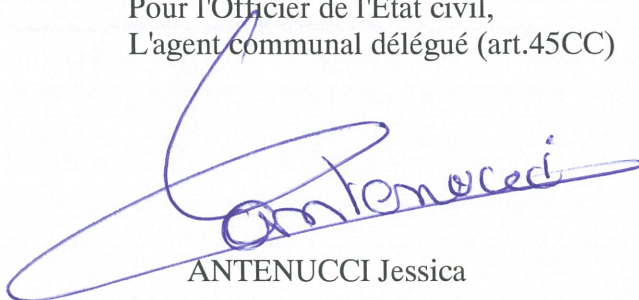 Pour l'Officier de l'Etat civil,
L'agent communal délégué (art.45CC)
Antenucci
ANTENUCCI Jessica